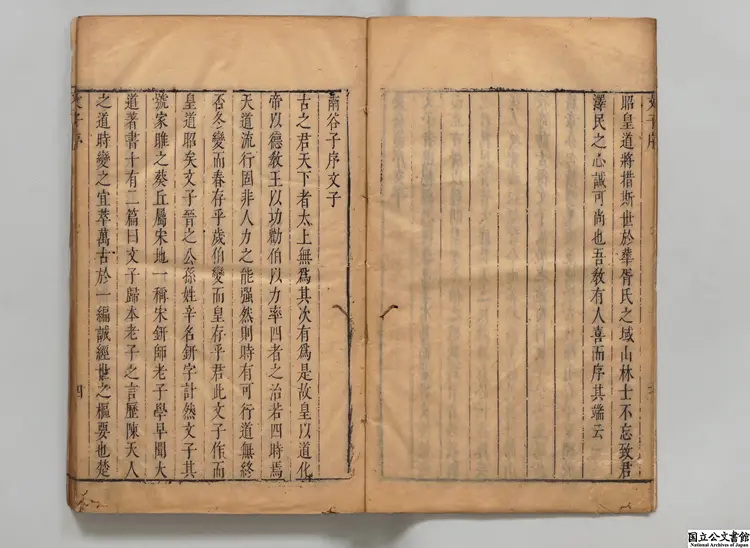 文子序
昭皇道將措斯世於華胥氏之域山林士不忘致君
澤民之心誠可尚也吾教有人喜而序其端云
南谷子序文子
古之君天下者太上無爲其次有爲是故皇以道化
帝以德敎王以功勸伯以力率四者之治若四時焉
天道流行固非人力之能强然則時有可行道無終
否冬變而春存乎歲伯變而皇存乎君此文子作而
皇道昭矣文子晉之公孫姓辛名鈃字計然文子其
號家睢之葵丘屬宋地一稱宋鈃師老子學早聞大
道著書十有二篇曰文子歸本老子之言歷陳天人
之道時變之宜萃萬古於一編誠經世之樞要也楚
文子序
四
国立公文書館
National Archives of Japan